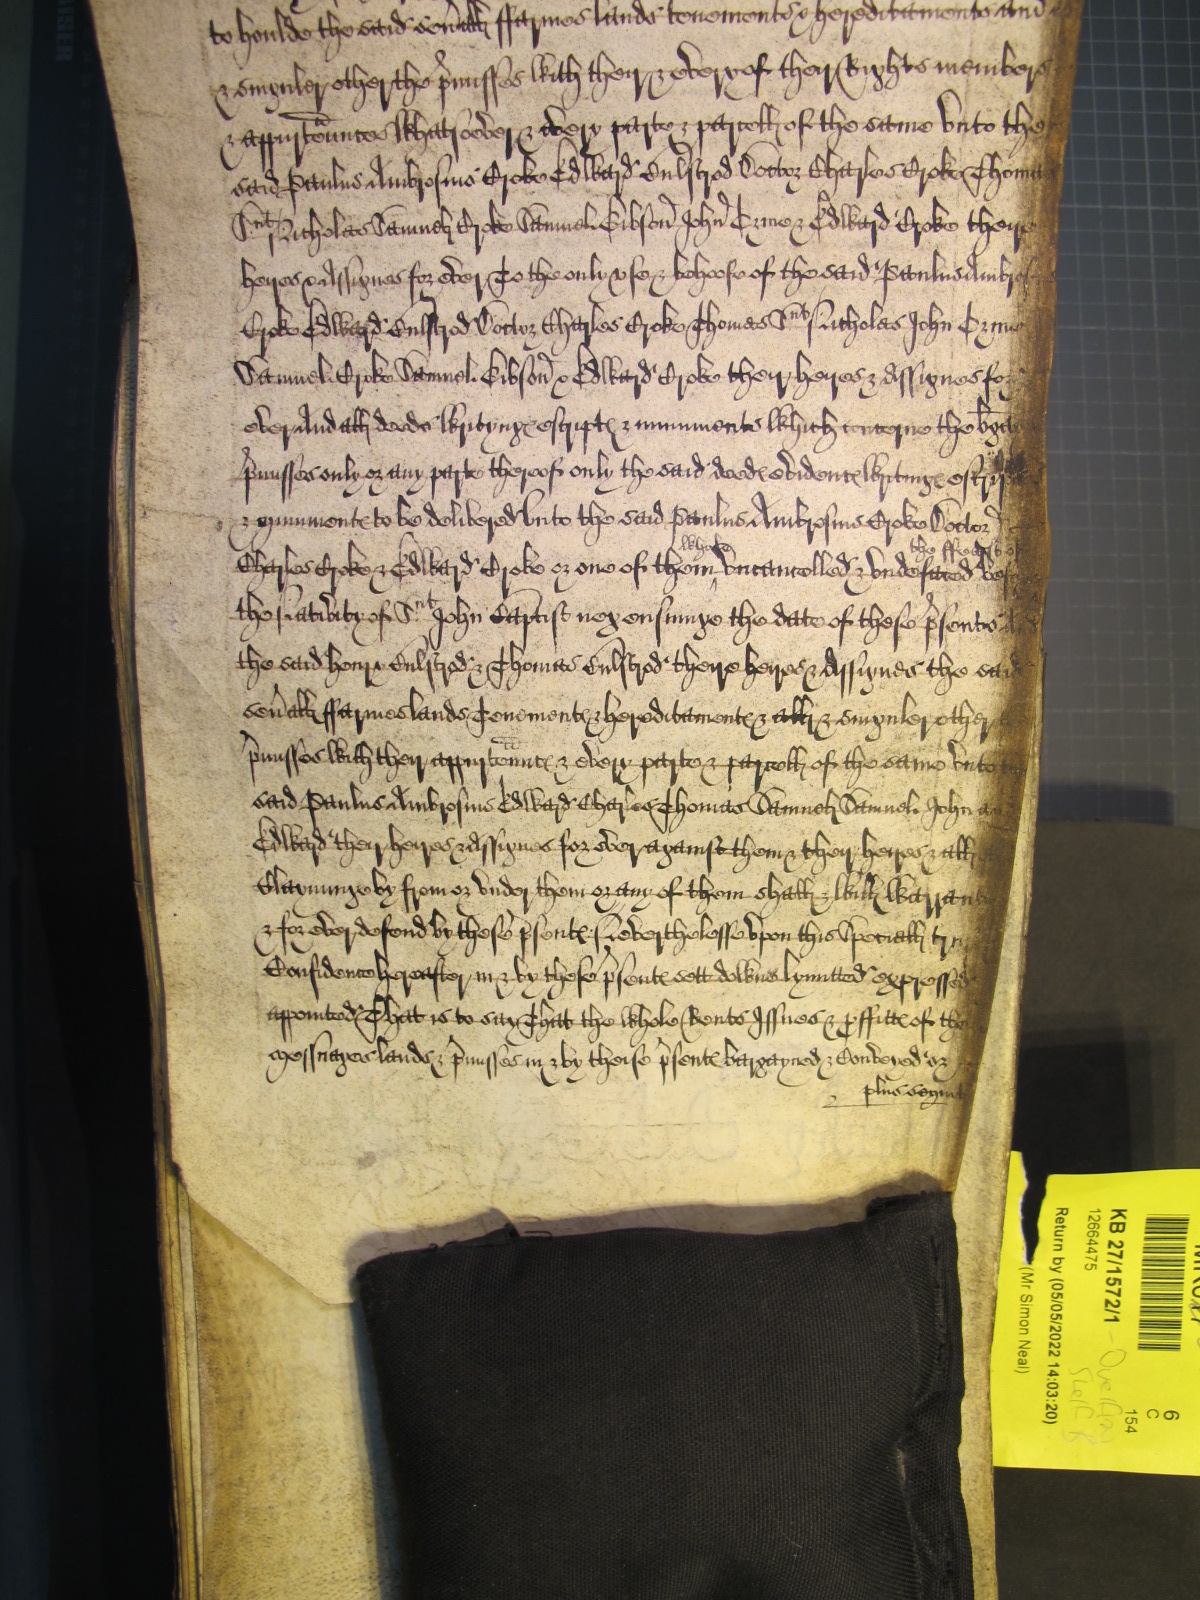 to houlde the said sev'all ffarmes lands tenements & hereditaments and
& singuler other the p'misses with their & every of their Rights members
& appurtennces whatsoever & every parte & parcell of the same vnto the
said Paulus Ambrosius Croke Edward Bulstrod Doctor Charles Croke Thomas
St Nicholas Samuell Croke Samuel Gibson John Crme & Edward Croke theire
heyres & Assignes for ever To the only vse & behoofe of the said Paulus Ambrosius
Croke Edward Bulstrod Doctor Charles Croke Thomas St Nicholas John Crme
Samuel Croke Samuel Gibson & Edward Croke their heyres & Assignes for
ever And all deeds wrytyngs escripts & muniments which concerne the
p'misses only or any parte thereof only the said deeds evidents writings
& muniments to be delivered vnto the said Paulus Ambrosius Croke Doctor
whole the
Charles Croke & Edward Croke or one of them vncancelled & vndefaced
the Nativity of St John Baptist next ensuinge the date of these p'sents And
the said henry Bulstrod & Thomas Bulstrod theire heyres & Assignes the said
sev'all ffarmes lands Tenements & hereditaments & all & singuler other
p'misses with their appurtennces & every parte & parcell of the same vnto
said Paulus Ambrosius Edward Charles Thomas Samuell Samuel John
Edward their heyres & Assignes for ever against them & their heyres & all
Clayminge by from or vnder them or any of them shall & will warrant
& for ever defend by these p'sents Neverthelesse vpon this Speciall
Confidence hereafter in & by these p'sents sett downe lymitted expressed
appointed That is to say That the whole Rents Issues & p'ffitts of the
messuages lands & p'misses in & by theise p'sents bargayned & Conveyed or
plus
KB 27/1572/1
12664475
Return by (05/05/2022 14:03:20)
(Mr Simon Neal)
6
C
154